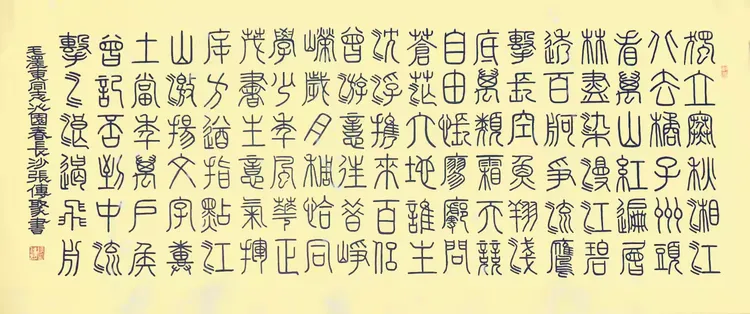 獨立寒秋湘江
北去橘子州頭
看萬山紅遍層
林盡染漫江碧
透百舸爭流鷹
擊長空魚翔淺
底萬類霜天競
自由悵廖廓問
蒼茫大地誰主
沈浮攜來百侶
曾游憶往昔崢
嶸歲月稠恰同
學少年風華正
茂書生意氣揮
斥方遒指點江
山激揚文字糞
土當年萬戶侯
曾記否到中流
擊水浪遏飛舟
毛澤東同志沁園春長沙張傳聚書